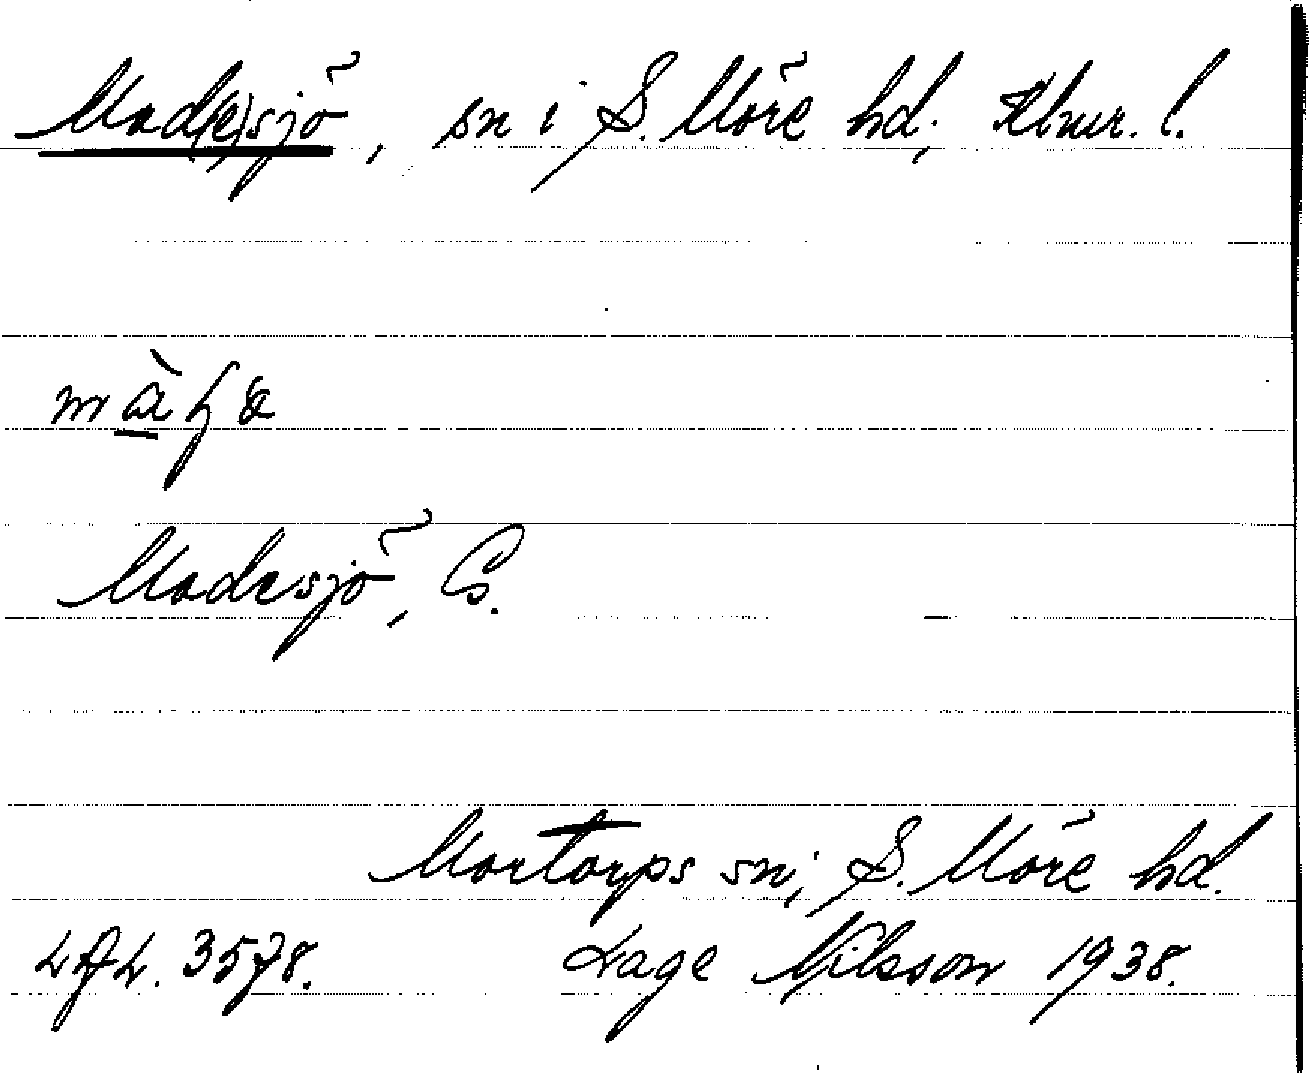 Mad(e)sjö, sn i S. Möre hd; Klmr. l.
Madesjö, C.
Mortorps sn; S. Möre hd.
3578. Lage Nilsson 1938.